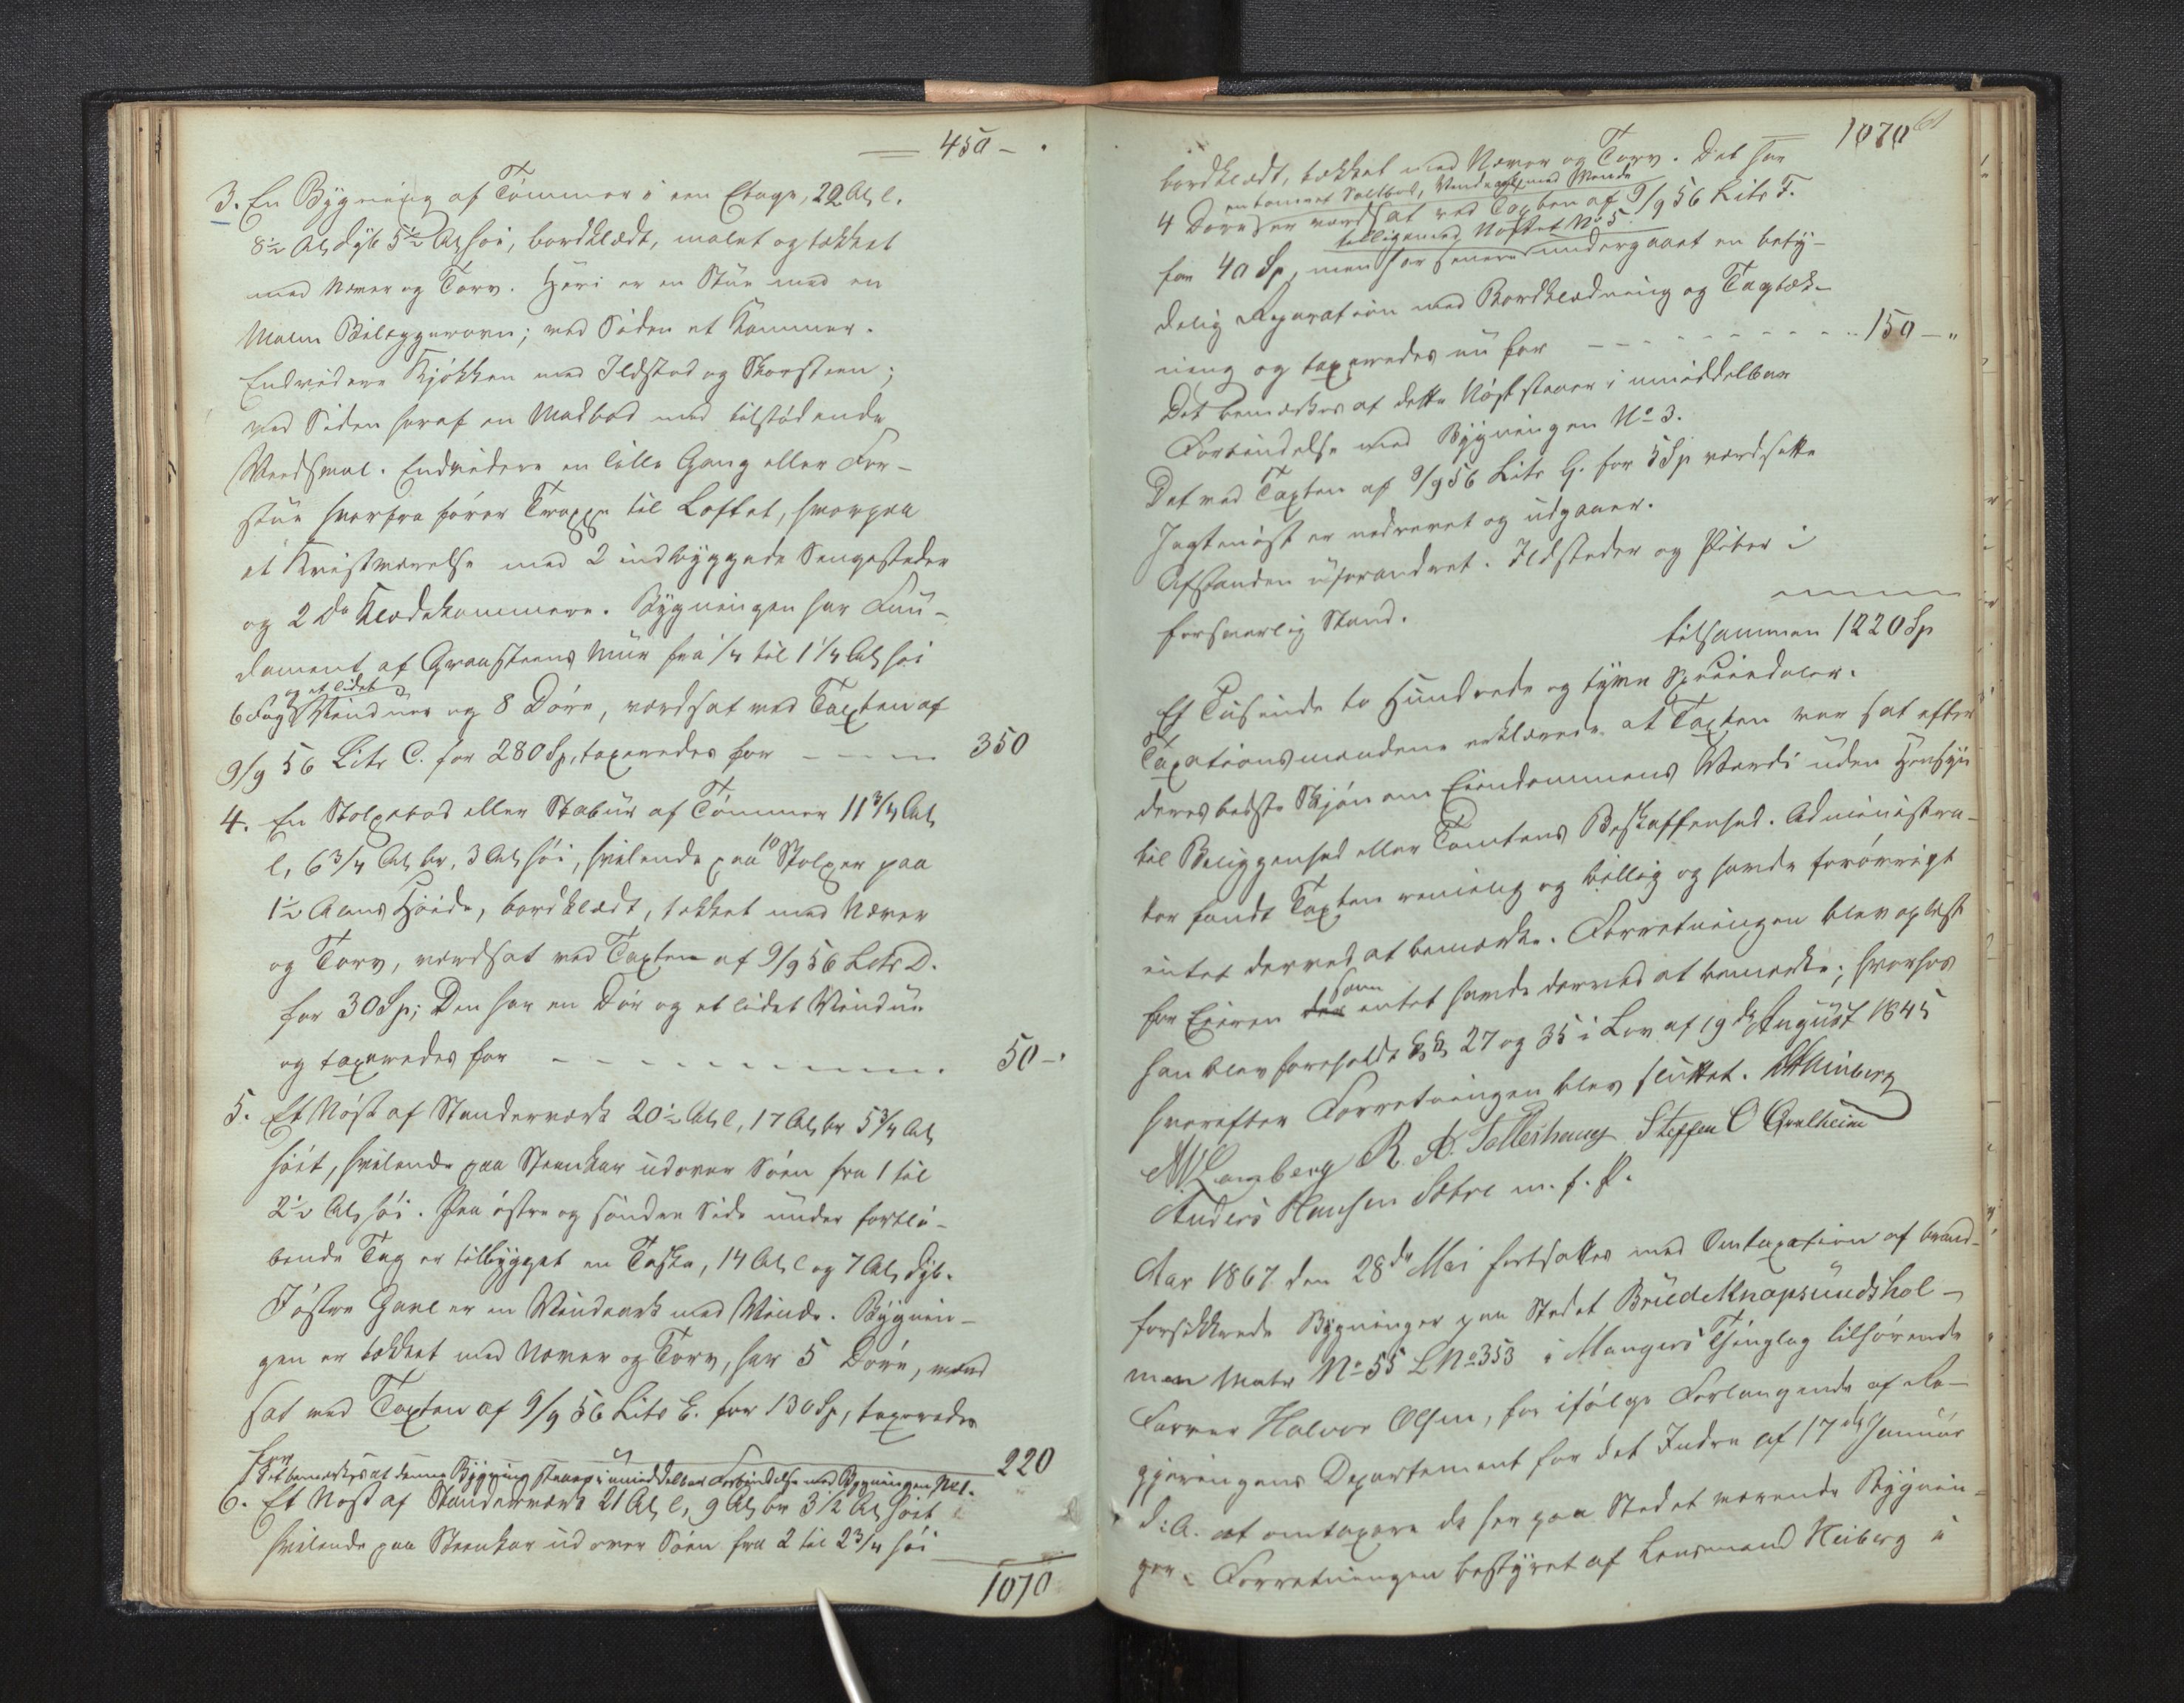 450 - .
3. En Bygning af Tømmer i een Etage, 22 Al. l.
8½ Al. dyb 5½ Al. høi, bordklædt, malet og tækket
med Næver og Torv. Heri er en Stue med en
Malm Bilæggerovn; ved Siden et Kammer.
Endvidere Kjøkken med Ildsted og Skorsteen;
ved Siden heraf en Madbod med tilstødende
Vedsval. Endvidere en lille Gang eller For-
stue hvorfra fører Trappe til Loftet, hvorpaa
et Kvistværelse med 2 indbyggede Sengesteder
og 2 do Klædekammere. Bygningen har Fun-
dament af Graasteens Muur fra ¼ til 1¼ Al. høi
og et lidet
6 Fag Vinduer og 8 Døre, værdsat ved Taxten af
9/9 56 Litr C. for 280 Sp, taxeredes for - - - - 350
4. En Stolpebod eller Stabuur af Tømmer 11¾ Al.
l, 6¾ Al. br, 3 Al. høi, hvilende paa 10 Stolper paa
1½ Alens Høide, bordklædt, tækket med Næver
og Torv, værdsat ved Taxten af 9/9 56 Litr D.
for 30 Sp; Den har en Dør og et lidet Vindue
og taxeredes for - - - - - - - - - 50 - .
5. Et Nøst af Stenderværk 20½ Al. l, 17 Al. br 5¾ Al.
høit, hvilende paa Steenkar udover Søen fra 1 til
2½ Al. høi. Paa østre og søndre Side under fortlø-
bende Tag er tilbygget en Taska, 14 Al. l og 7 Al. dyb.
I østre Gavl er en Vindeark med Vinde. Bygnin-
gen er tækket med Næver og Torv, har 5 Døre, værd
sat ved Taxten af 9/9 56 Litr E. for 130 Sp, taxeredes
for 220
Det bemærkes at denne Bygning staaer i umiddelbar Forbindelse med Bygningen No 1.
6. Et Nøst af Stenderværk 21 Al. l, 9 Al. br 3½ Al. høit
hvilende paa Steenkar ud over Søen fra 2 til 2¾ høi
1070
1070 61
bordklædt, tækket med Næver og Torv. Det har
en tømret Saltbod, Vindeark med Vinde
4 Døre er værdsat ved Taxten af 9/9 56 Litr F.
tilligemed Nøstet No 5
for 40 Sp, men har senere undergaaet en bety-
delig Reparation med Bordklædning og Tagtæk-
ning og taxeredes nu for - - - - - - - - 150 - "
Det bemærkes at dette Nøst staaer i umiddelbar
Forbindelse med Bygningen No 3.
Det ved Taxten af 9/9 56 Litr G. for 5 Sp værdsatte
Jagtenøst er nedrevet og udgaaer.
Afstanden uforandret. Ildsteder og Piber i
forsvarlig Stand.
tilsammen 1220 Sp
Et Tusinde to Hundrede og tyve Speciedaler.
Taxationsmændene erklærede at Taxten var sat efter
deres bedste Skjøn om Eiendommens Værdi uden Hensyn
til Beliggenhed eller Tomtens Beskaffenhed. Administra-
tor fandt Taxten rimelig og billig og havde forøvrigt
intet derved at bemærke. Forretningen blev oplæst
for Eieren som intet havde derved at bemærke; hvorhos
han blev foreholdt §§ 27 og 35 i Lov af 19de August 1845
hvorefter Forretningen blev sluttet. Heiberg
M. Lamberg R. A. Tellehaug Steffen O Qvalheim
Anders Hansen Sætre m. f. P.
Aar 1867 den 28de Mai fortsattes med Omtaxation af brand-
forsikkrede Bygninger paa Stedet BrudeKnapsundshol-
men Matr No 55 L No 353 i Mangers Thinglag tilhørende
Farver Halvor Olsen, for ifølge Forlangende af Re-
gjeringens Departement for det Indre af 17de Januar
d: A. at omtaxere de her paa Stedet værende Bygnin-
ger. Forretningen bestyret af Lensmand Heiberg i